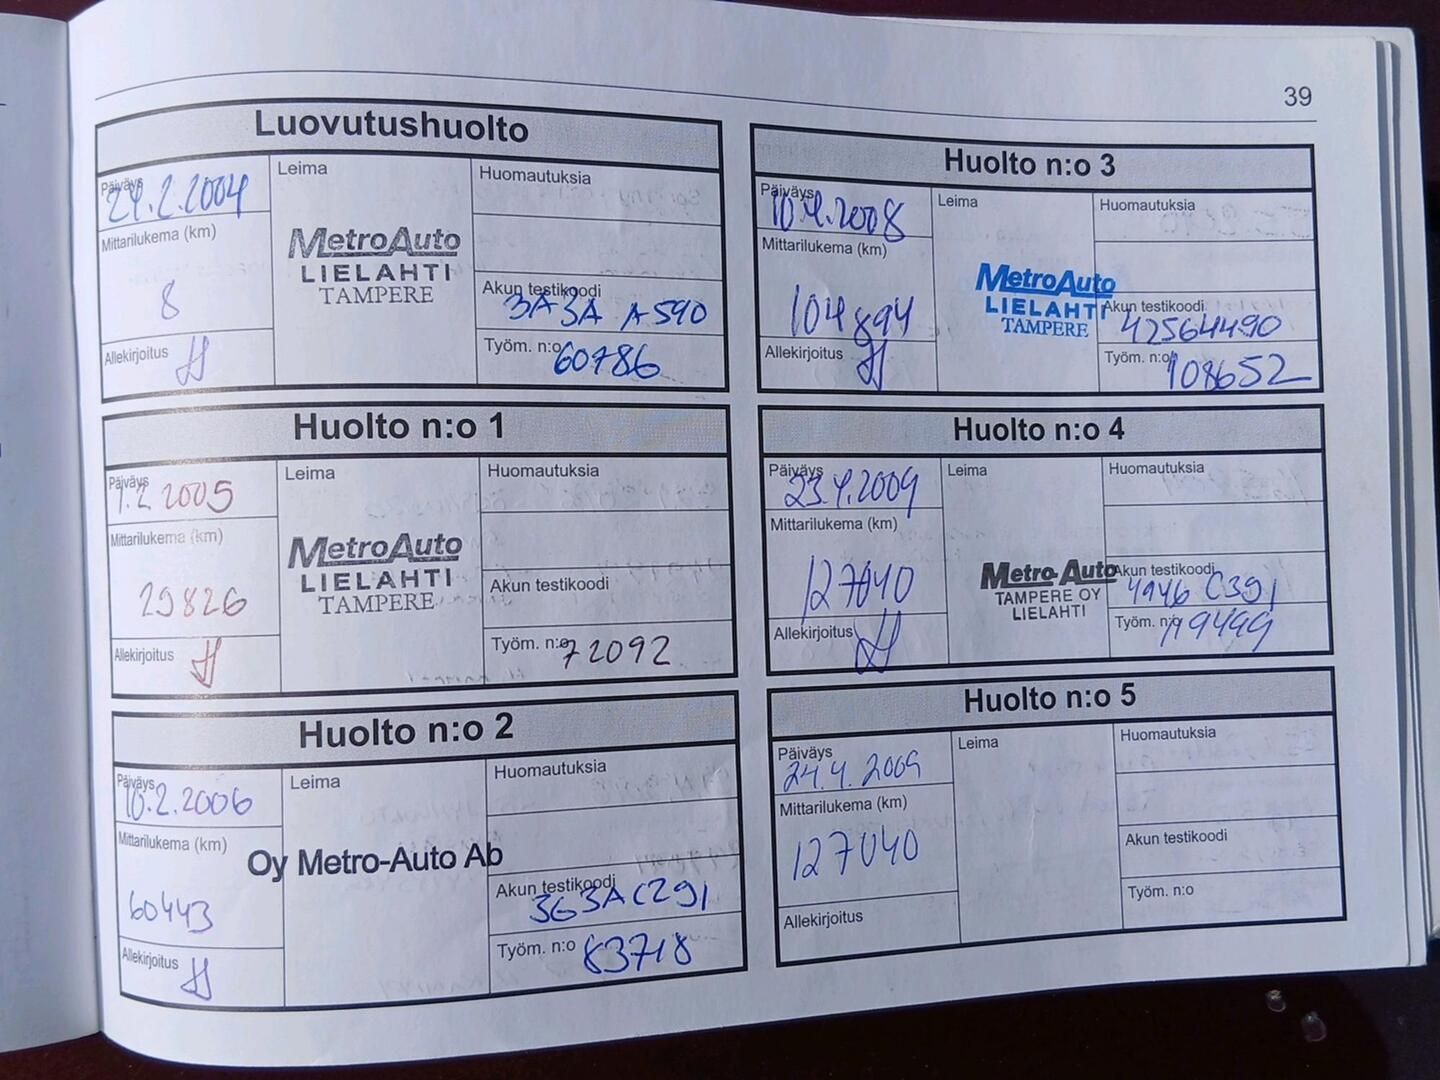 39
Luovutushuolto
Päiväys
24.2.2004
Leima
Huomautuksia
Mittarilukema (km)
8
MetroAuto
LIELAHTI
TAMPERE
Akun testikoodi
3A3A A590
Allekirjoitus
Työm. n:o
60786
Huolto n:o 1
Päiväys
1.2.2005
Leima
Huomautuksia
Mittarilukema (km)
29826
MetroAuto
LIELAHTI
TAMPERE
Akun testikoodi
Allekirjoitus
Työm. n:o
72092
Huolto n:o 2
Päiväys
10.2.2006
Leima
Huomautuksia
Mittarilukema (km)
60443
Oy Metro-Auto Ab
Akun testikoodi
363AC291
Allekirjoitus
Työm. n:o
83718
Huolto n:o 3
Päiväys
10.4.2008
Leima
Huomautuksia
Mittarilukema (km)
104894
MetroAuto
LIELAHTI
TAMPERE
Akun testikoodi
42564490
Allekirjoitus
Työm. n:o
108652
Huolto n:o 4
Päiväys
23.4.2009
Leima
Huomautuksia
Mittarilukema (km)
127040
Metro-Auto
TAMPERE OY
LIELAHTI
Akun testikoodi
4946 C391
Allekirjoitus
Työm. n:o
119499
Huolto n:o 5
Päiväys
24.4.2009
Leima
Huomautuksia
Mittarilukema (km)
127040
Akun testikoodi
Allekirjoitus
Työm. n:o